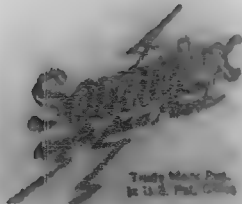 Trade Mark Reg.
in U.S. Pat. Office